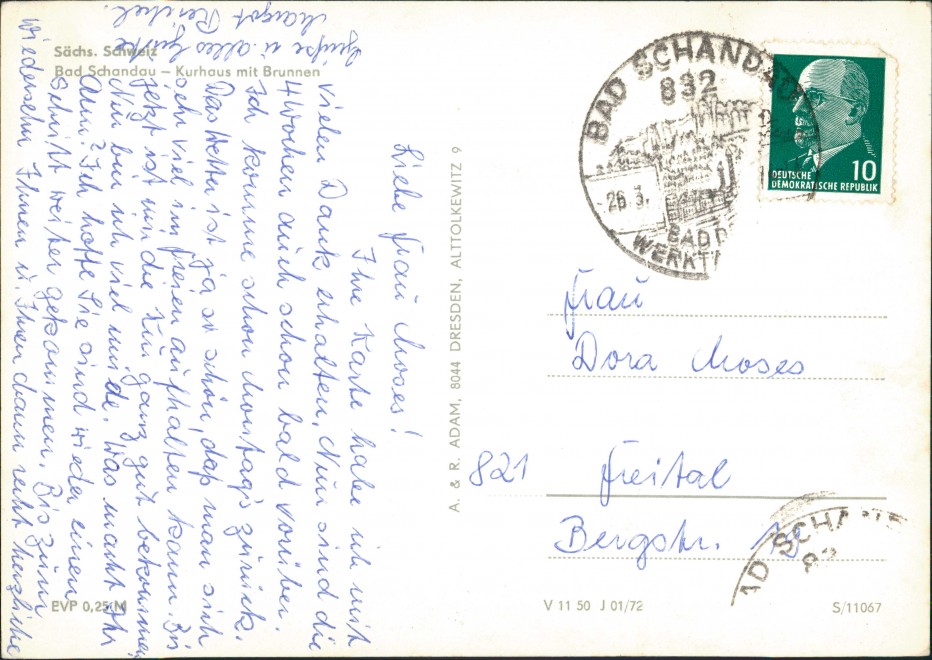 Sächs. Schweiz
Bad Schandau — Kurhaus mit Brunnen
Liebe Frau Moses!
Ihre Karte habe ich mit
vielen Dank erhalten. Nun sind die
4 Wochen auch schon bald vorüber.
Ich komme schon Montags zurück.
Das Wetter ist ja so schön, daß man sich
sehr viel im Freien aufhalten kann. Bis
jetzt ist mir die Kur ganz gut bekommen,
Nun bin ich viel müde. Was macht Ihr
Arm? Ich hoffe Sie sind wieder einen
Schritt weiter gekommen. Bis zum
Wiedersehn Ihnen u. Ihren dann recht herzliche
Grüße u. alles Gute
Margot Reichel.
EVP 0,25 M
A. & R. ADAM, 8044 DRESDEN, ALTTOLKEWITZ 9
BAD SCHANDAU
832
26.3.
BAD
WERKT
DEUTSCHE
DEMOKRATISCHE REPUBLIK
10
Frau
Dora Moses
821 Freital
Bergstr.
AD SCHAN
V 11 50 J 01/72
S/11067